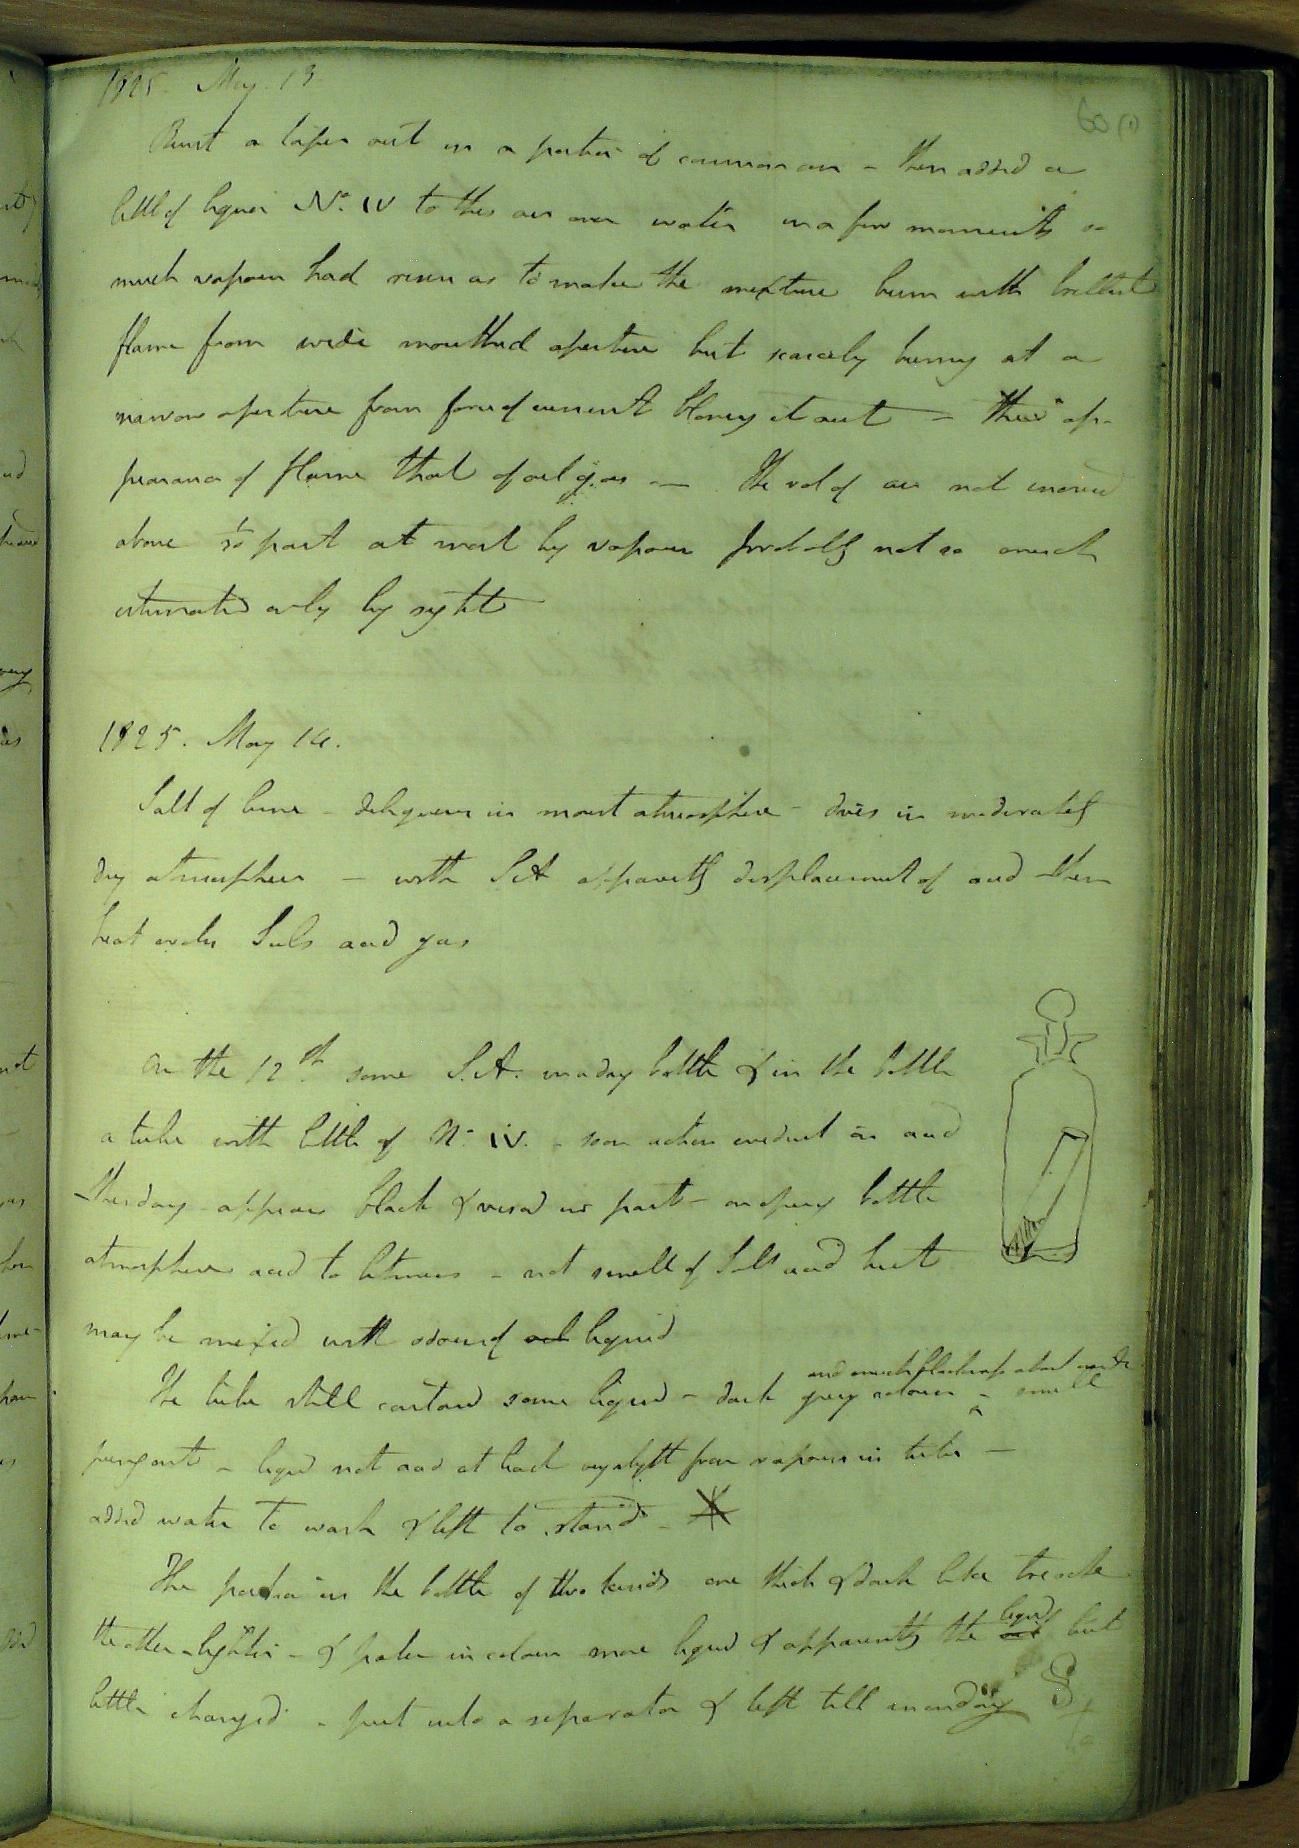 1825. May. 13
60 (1)
Burnt a taper out in a portion of common air - then added a
little of liquor No. IV to this air over water in a few moments so
much vapour had risen as to make the mixture burn with brilliant
flame from wide mouthed aperture but scarcely burning at a
narrow aperture from force of current blowing it out - The ap-
pearance of flame that of oil gas - The vol of air not increased
above 1/50 part at most by vapour probably not so much
estimated only by sight
1825. May 14.
Salt of lime - deliquesces in moist atmosphere - dries in moderately
dry atmosphere - with S.A apparently displacement of acid then
heat evolves Sul acid gas
On the 12th some S.A. in a dry bottle & in the bottle
a tube with little of No. IV. - soon action evident in acid
this day appears black & viscid in part - on opening bottle
atmosphere acid to litmus - not smell of Sul acid but
may be mixed with odour of oil liquid
and much
The tube still contained some liquid - dark grey colour - smell
pungent - liquid not acid at least slightly from vapour in tube -
added water to wash & left to stand -
The portion in the bottle of two kinds one thick & dark like treacle
liquid
the other lighter - & paler in colour more liquid & apparently the oil but
little changed - put into a separator & left till monday